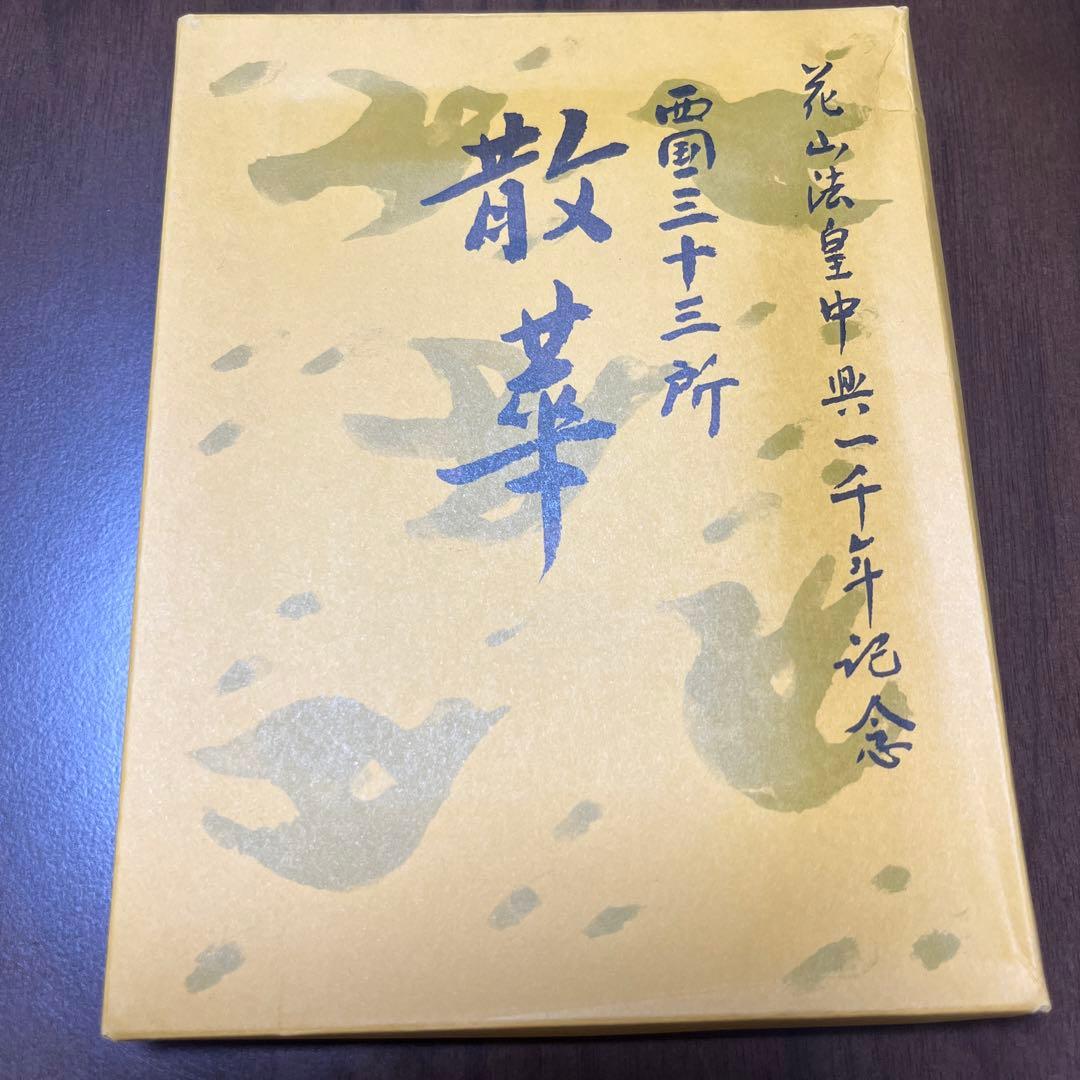 花山法皇中興一千年記念
西国三十三所
散華